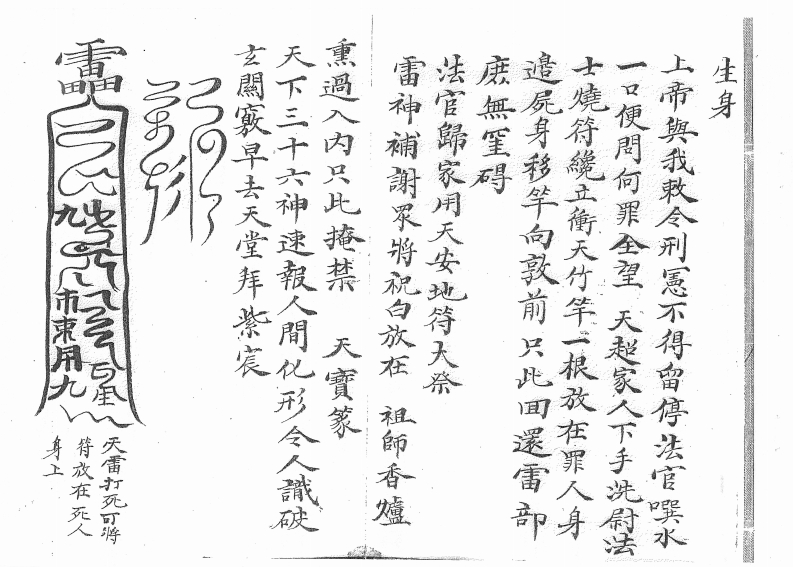 生身
上帝與我敕令刑憲不得留停法官噀水
一口便問何罪全望 天超家人下手洗尉法
士燒符纔立衝天竹竿一根放在罪人身
邉屍身移竿向敦前只此囬還雷部
庶無窒碍
法官歸家用天安地符大祭
雷神補謝眾將祝白放在 祖師香爐
熏過入內只此掩禁 天寶篆
天下三十六神速報人間化形令人識破
玄關竅早去天堂拜紫宸
雷
九
市東用九
天雷打死可將
符放在死人
身上